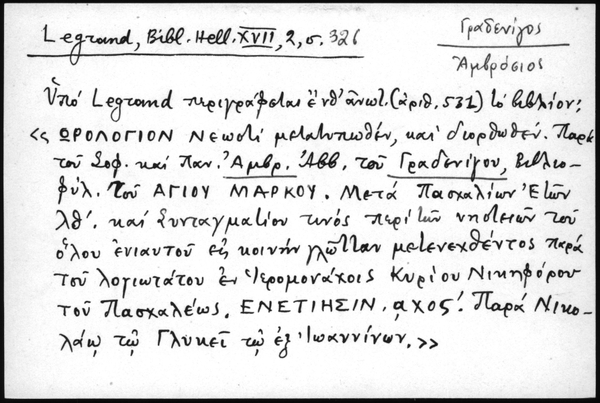 Legrand, Bibl. Hell. XVII, 2, σ. 326
Γραδενίγος
Ἀμβρόσιος
Ὑπό Legrand περιγράφεται ἔνθ' ἀνωτ. (ἀριθ. 531) τό βιβλίον:
<< ΩΡΟΛΟΓΙΟΝ Νεωστί μετατυπωθέν, καί διορθωθέν. Παρά
τοῦ Σοφ. καί Παν. Ἀμβρ. Ἀββ. τοῦ Γραδενίγου, Βιβλιο-
φύλ. τοῦ ΑΓΙΟΥ ΜΑΡΚΟΥ. Μετά Πασχαλίων Ἐτῶν
λθ'. καί Συνταγματίου τινός περί τῶν νηστειῶν τοῦ
ὅλου ἐνιαυτοῦ εἰς κοινήν γλῶτταν μετενεχθέντος παρά
τοῦ λογιωτάτου ἐν Ἱερομονάχοις Κυρίου Νικηφόρου
τοῦ Πασχαλέως. ΕΝΕΤΙΗΣΙΝ. ͵αχος'. Παρά Νικο-
λάῳ τῷ Γλυκεῖ τῷ ἐξ Ἰωαννίνων. >>